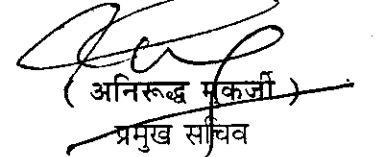 ( अनिरूद्ध मुकर्जी )
प्रमुख सचिव